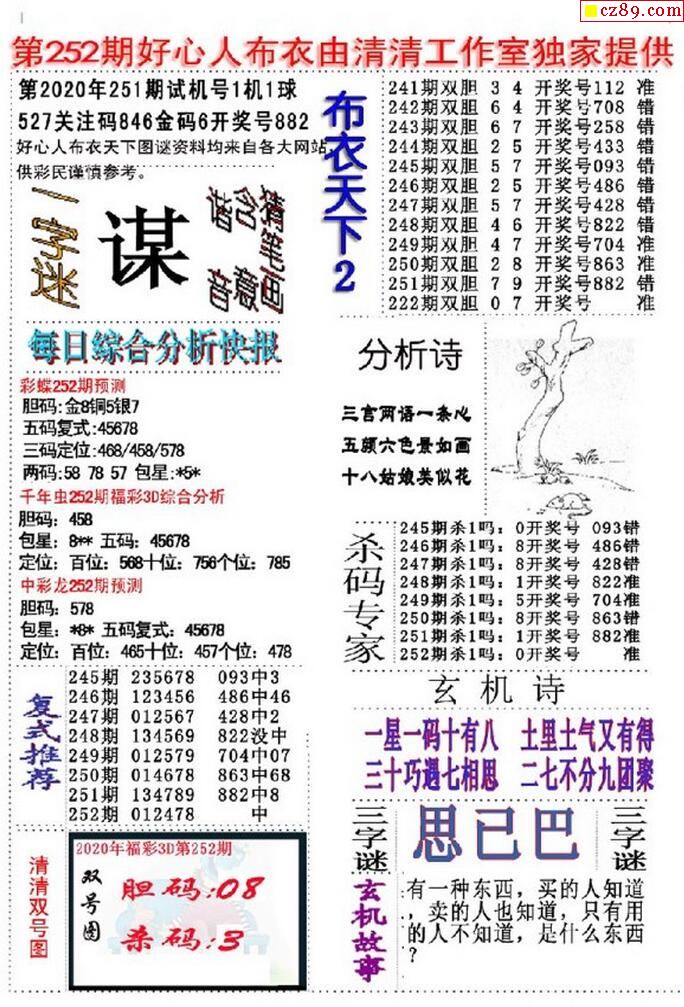 cz89.com
第252期好心人布衣由清清工作室独家提供
第2020年251期试机号1机1球
527关注码846金码6开奖号882
好心人布衣天下图谜资料均来自各大网站,
供彩民谨慎参考。
一字迷
谋
谐含猪笔画
音意
布衣天下2
241期双胆 3 4 开奖号112 准
242期双胆 6 4 开奖号708 错
243期双胆 6 7 开奖号258 错
244期双胆 2 5 开奖号433 错
245期双胆 5 7 开奖号093 错
246期双胆 2 5 开奖号486 错
247期双胆 5 7 开奖号428 错
248期双胆 4 6 开奖号822 错
249期双胆 4 7 开奖号704 准
250期双胆 2 8 开奖号863 准
251期双胆 7 9 开奖号882 错
222期双胆 0 7 开奖号 准
每日综合分析快报
彩蝶252期预测
胆码:金8铜5银7
五码复式:45678
三码定位:468/458/578
两码:58 78 57 包星:*5*
千年虫252期福彩3D综合分析
胆码: 458
包星: 8** 五码: 45678
定位: 百位: 568十位: 756个位: 785
中彩龙252期预测
胆码: 578
包星: *8* 五码复式: 45678
定位: 百位: 465十位: 457个位: 478
分析诗
三言两语一条心
五颜六色景如画
十八姑娘美似花
杀码专家
245期杀1吗: 0开奖号 093错
246期杀1吗: 8开奖号 486错
247期杀1吗: 8开奖号 428错
248期杀1吗: 1开奖号 822准
249期杀1吗: 5开奖号 704准
250期杀1吗: 8开奖号 863错
251期杀1吗: 1开奖号 882准
252期杀1吗: 0开奖号 准
复式推荐
245期 235678 093中3
246期 123456 486中46
247期 012567 428中2
248期 134569 822没中
249期 012579 704中07
250期 014678 863中68
251期 134789 882中8
252期 012478 中
玄机诗
一星一码十有八 土里土气又有得
三十巧遇七相思 二七不分九团聚
三字谜
思已巴
三字谜
清清双号图
2020年福彩3D第252期
双号图
胆码:08
杀码:3
玄机故事
有一种东西，买的人知道
，卖的人也知道，只有用
的人不知道，是什么东西
？